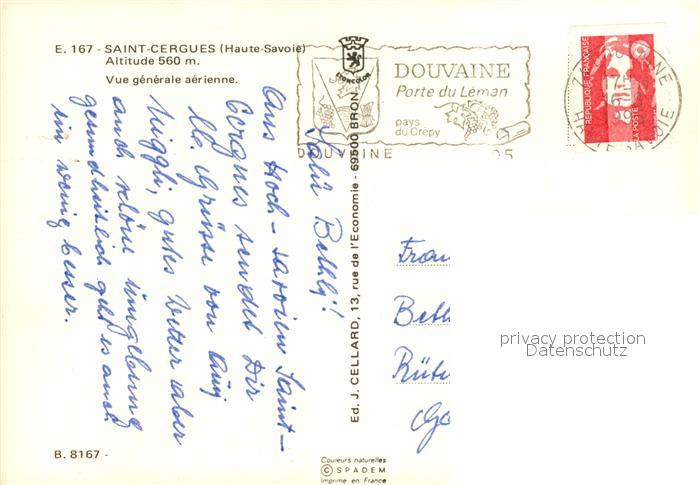 E. 167 - SAINT-CERGUES (Haute-Savoie)
Altitude 560 m.
Vue générale aérienne.
Salü Bethly!
Aus Hoch-Savoien Saint-
Cergues sendet Dir
lb. Grüsse von
Huggli, gutes Wetter aber
auch schöne Umgebung
gesundheitlich geht es auch
ein wenig besser.
B. 8167 -
Ed. J. CELLARD, 13, rue de l'Economie - 69500 BRON
DOUVAINE
Porte du Léman
pays
du Crépy
DOUVAINE
REPUBLIQUE FRANÇAISE
LA POSTE
Frau
Beth
Rüti
privacy protection
Datenschutz
Couleurs naturelles
© SPADEM
Imprimé en France